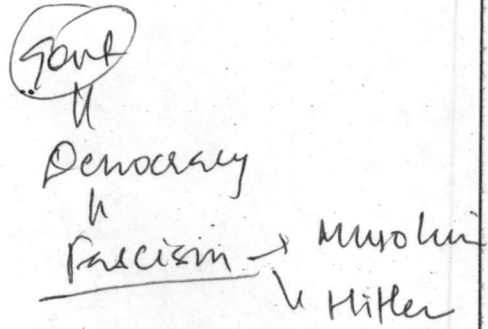 Govt
"
Democracy
"
Fascism → Musolini
↘ Hitler